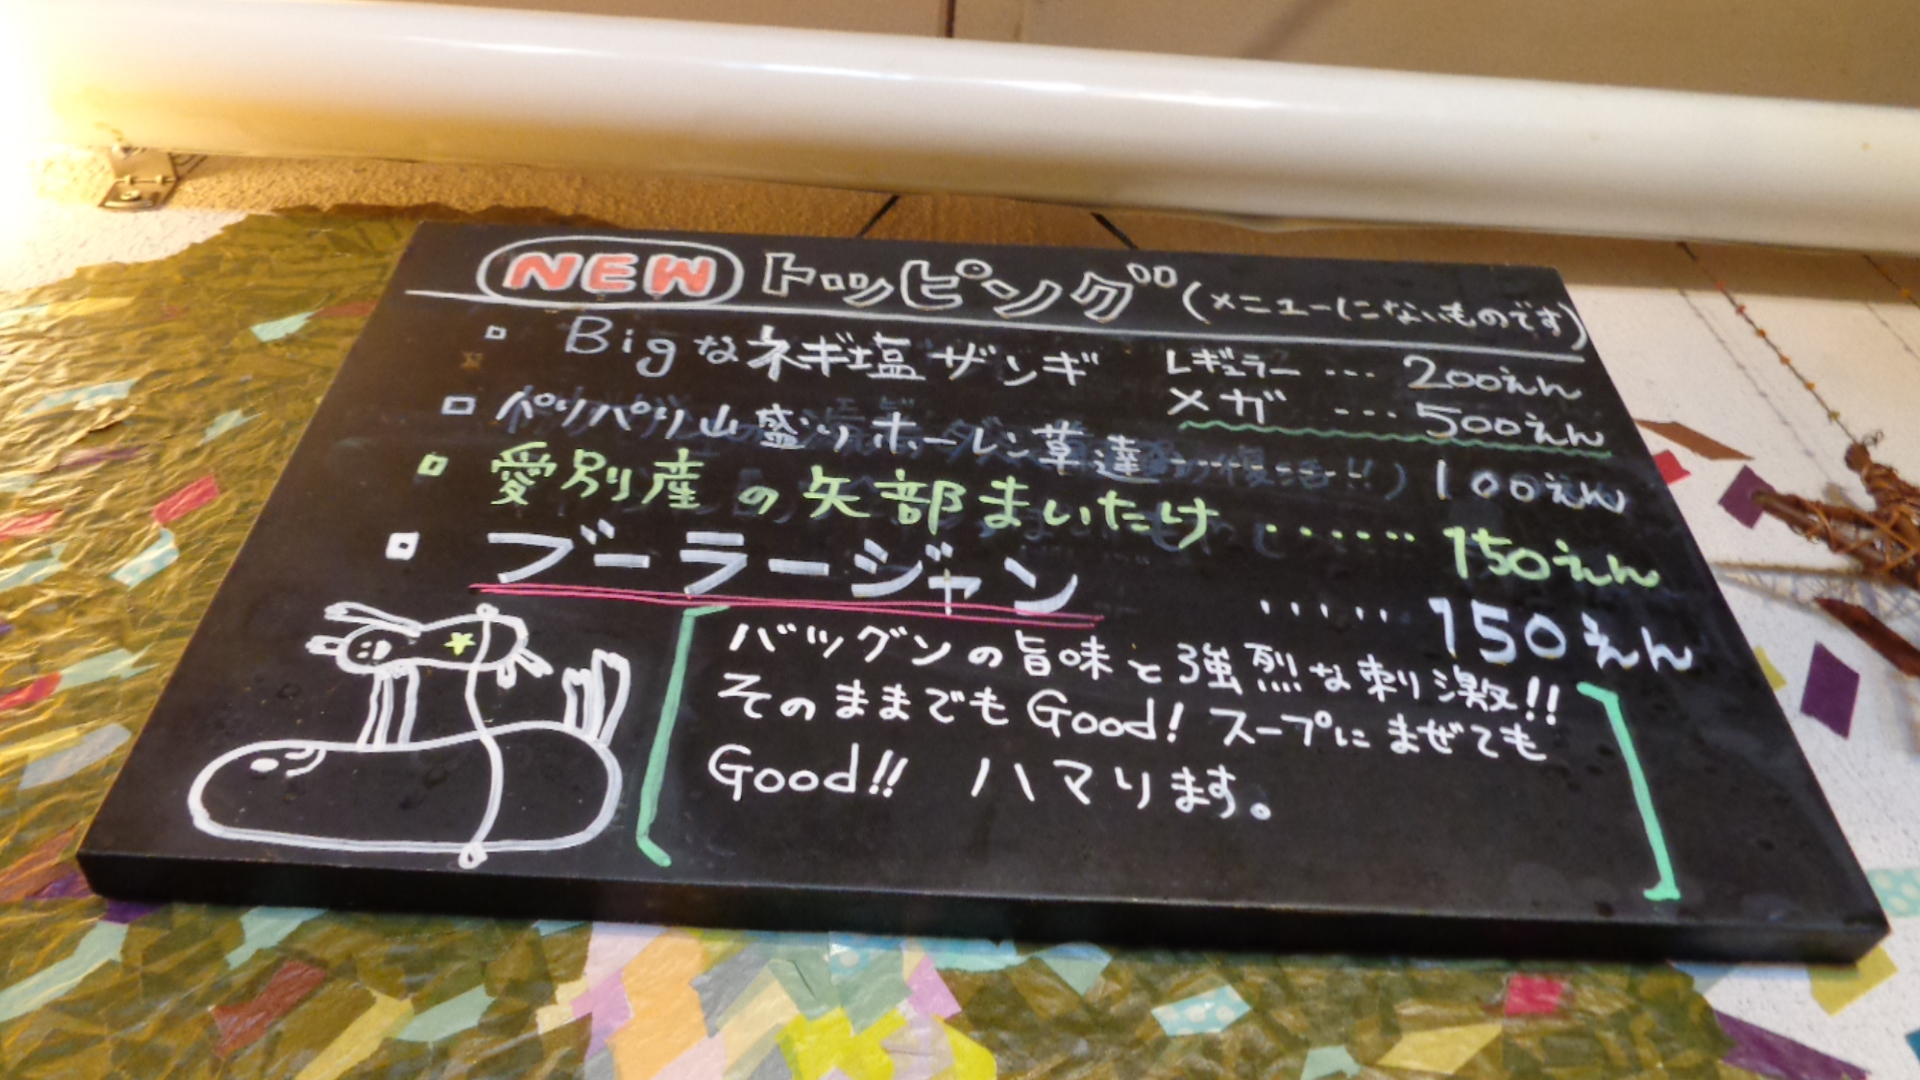 NEW トッピング (メニューにないものです)
Bigなネギ塩ザンギ レギュラー ... 200えん
メガ ... 500えん
パリパリ山盛りホーレン草達 100えん
愛別産の矢部まいたけ ...... 150えん
ブーラージャン ..... 150えん
バツグンの旨味と強烈な刺激!!
そのままでもGood! スープにまぜても
Good!! ハマります。